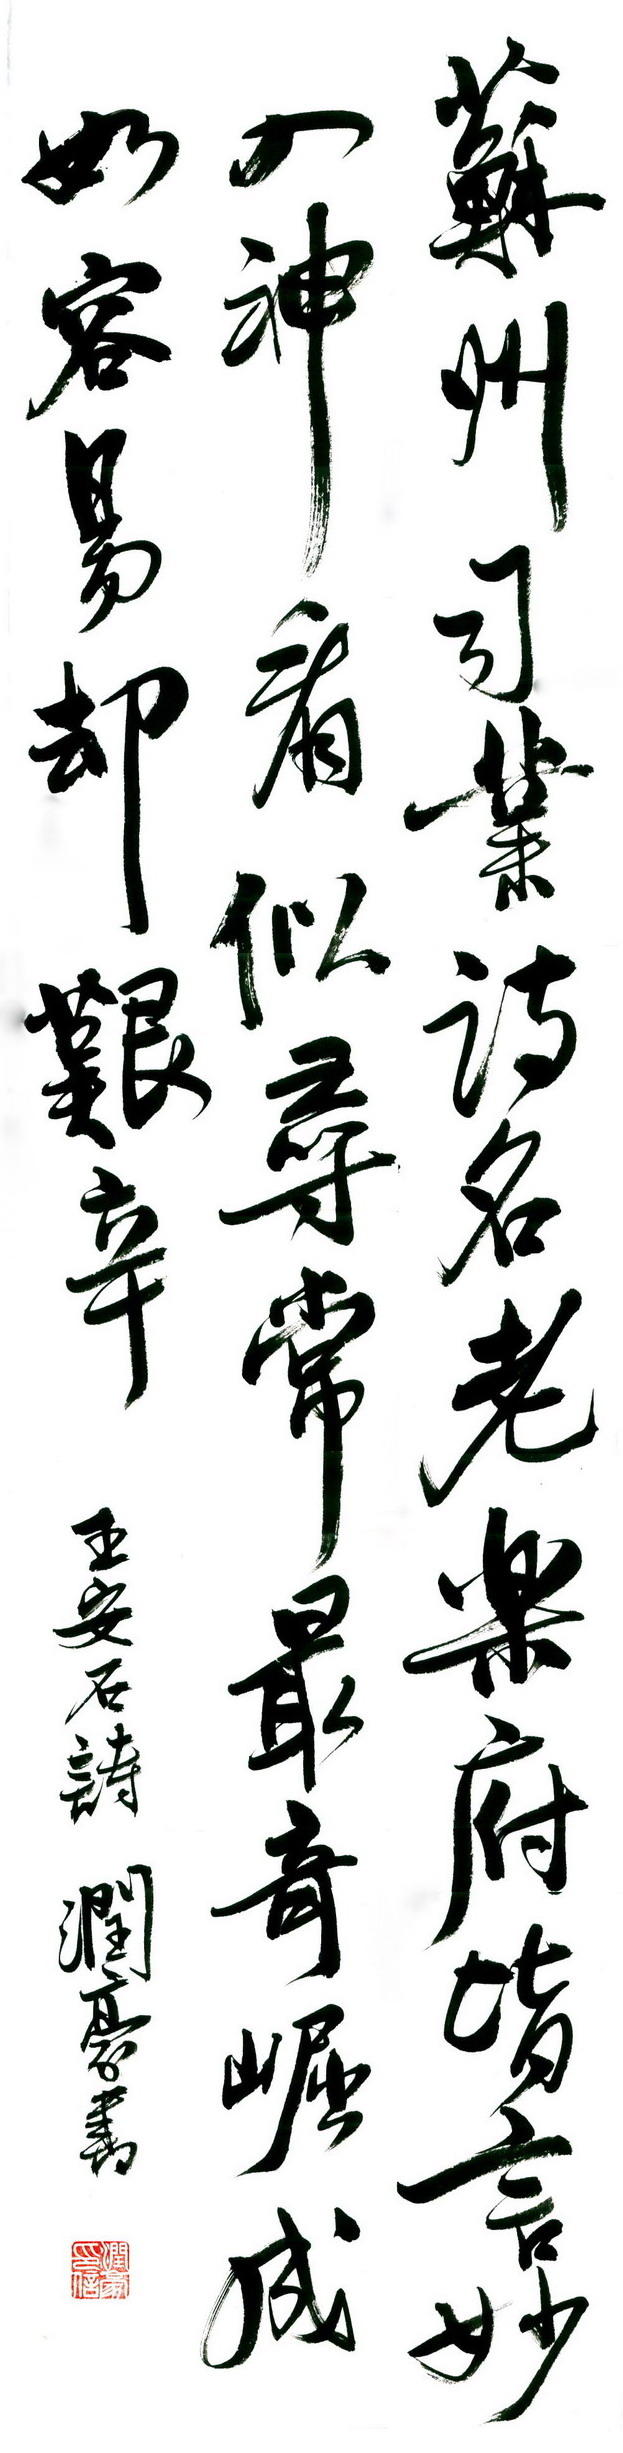 蘇州司業詩名老楽府皆言妙
入神看似尋常最奇崛成
如容易却艱辛
王安石詩 潤豪書
潤豪印信